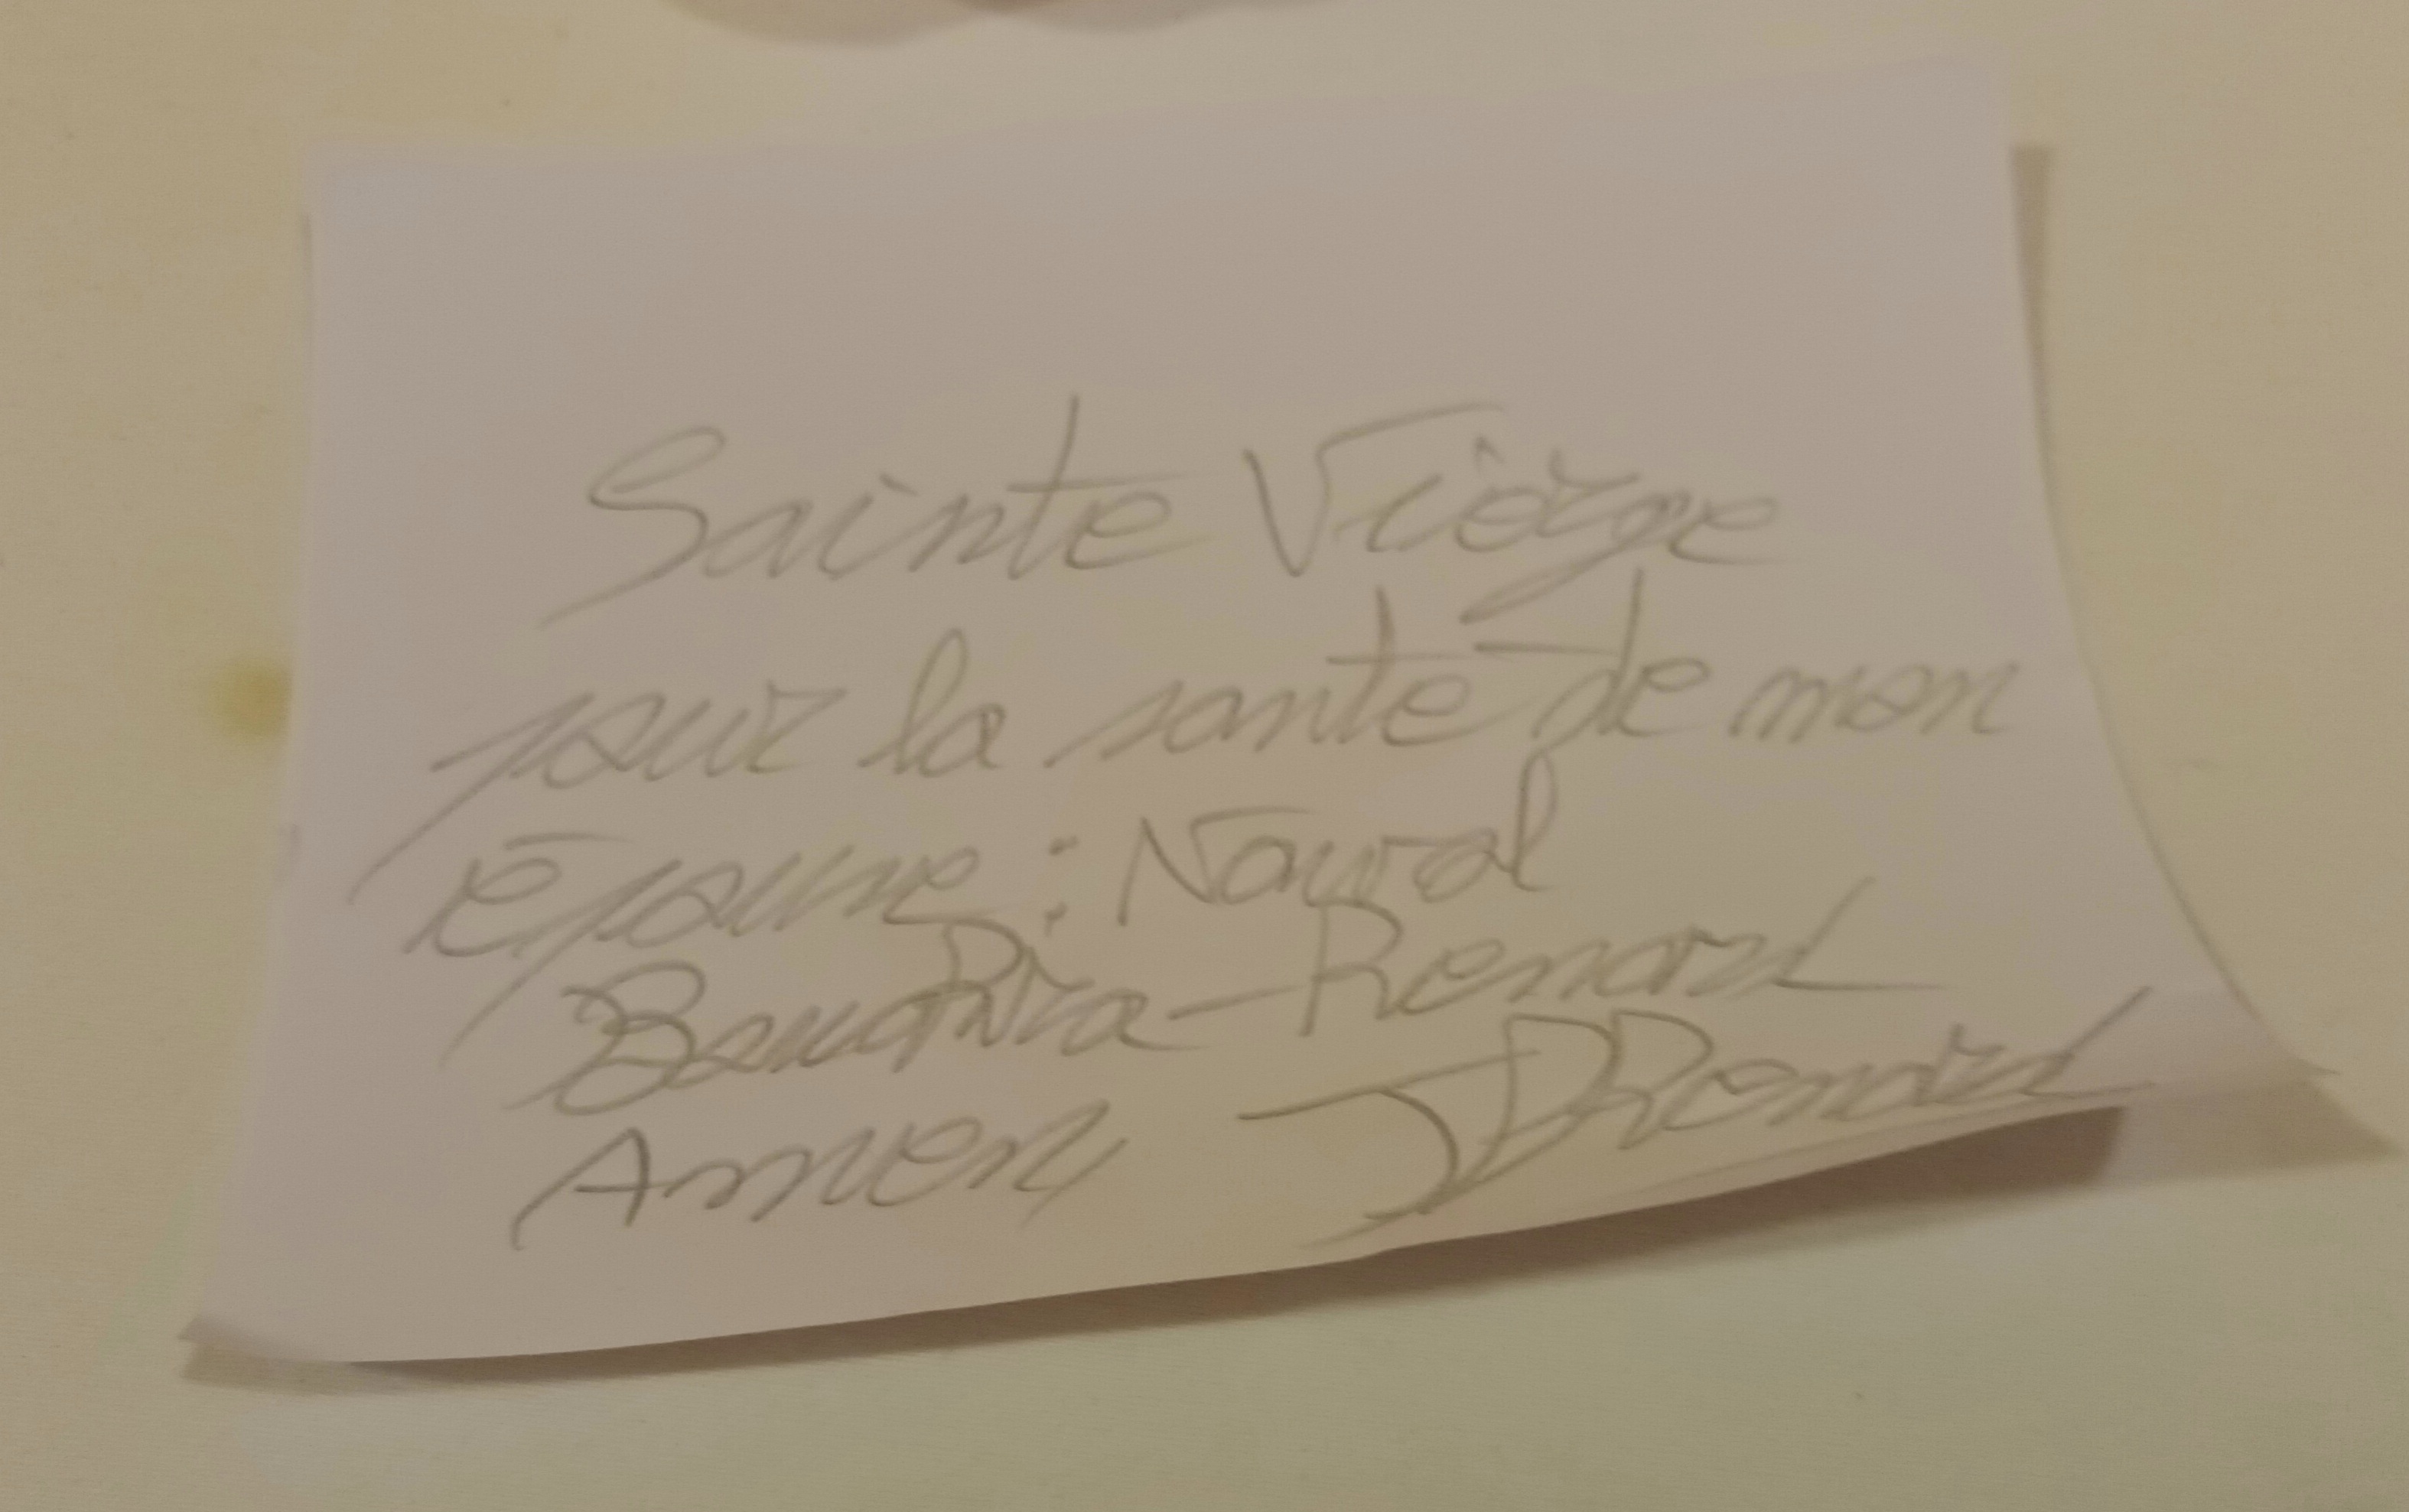 Sainte Viêrge
pour la santé de mon
Épouse : Nawal
Renard
Amen JDRenard